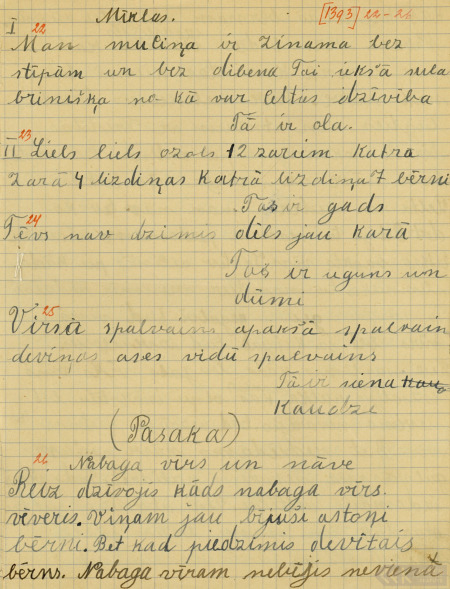 Mīklas. [1393] 22-26
I 22
Man muciņa ir zinama bez
stīpām un bez dibena Tai iekšā sula
briniška no kā var celtus dzīvība
Tā ir ola.
II 23 Liels liels ozols 12 zariem Katra
zarā 4 lizdiņas Katrā lizdiņa 7 bērni
Tas ir gads
24
Tēvs nav dzimis dēls jau Karā
Tas ir uguns un
dūmi
25
Virsā spalvains apakšā spalvain
deviņas ases vidū spalvains
Tā ir siena
Kaudze
(Pasaka)
26 Nabaga vīrs un nāve
Reiz dzīvojis kāds nabaga vīrs.
vēveris. Viņam jau bijuši astoņi
bērni. Bet kad piedzimis devītais
bērns. Nabaga vīram nebījis nevienā